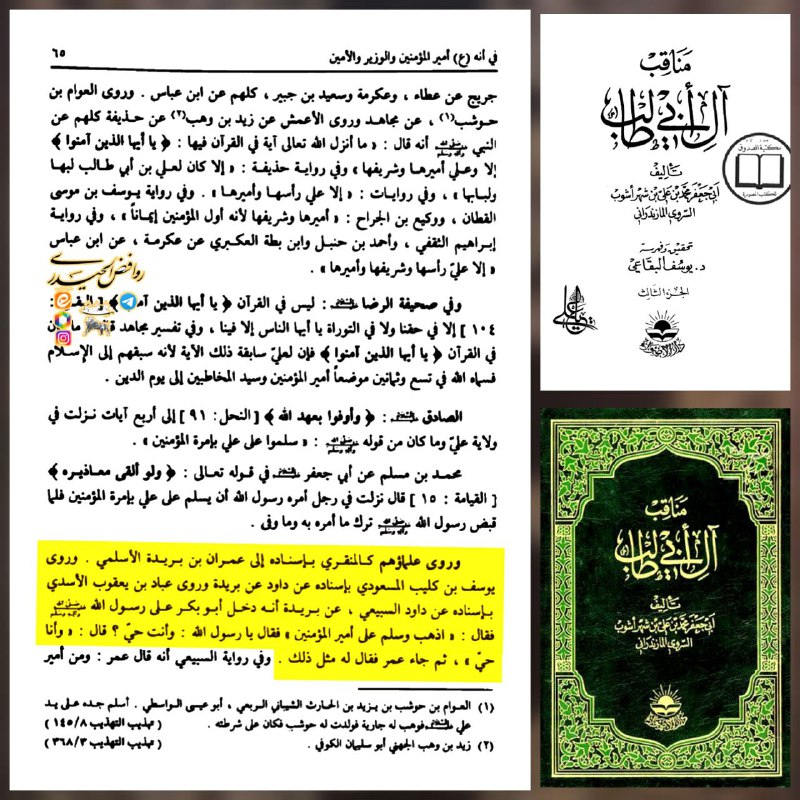 في أنه (ع) أمير المؤمنين والوزير والأمين
٦٥
جريج عن عطاء، وعكرمة وسعيد بن جبير، كلهم عن ابن عباس. وروى العوام بن
حوشب(١)، عن مجاهد وروى الأعمش عن زيد بن وهب(٢) عن حذيفة كلهم عن
النبي ﷺ أنه قال: «ما أنزل الله تعالى آية في القرآن فيها: ﴿يا أيها الذين آمنوا﴾
إلا وعلي أميرها وشريفها» وفي رواية حذيفة: «إلا كان لعلي بن أبي طالب لبها
ولبابها»، وفي روايات: «إلا علي رأسها وأميرها». وفي رواية يوسف بن موسى
القطان، ووكيع بن الجراح: «أميرها وشريفها لأنه أول المؤمنين إيماناً» وفي رواية
إبراهيم الثقفي، وأحمد بن حنبل وابن بطة العكبري عن عكرمة، عن ابن عباس
«إلا عليّ رأسها وشريفها وأميرها».
وفي صحيفة الرضا: ليس في القرآن ﴿يا أيها الذين آمنوا﴾
١٠٤] إلا في حقنا ولا في التوراة يا أيها الناس إلا فينا، وفي تفسير مجاهد
في القرآن ﴿يا أيها الذين آمنوا﴾ فإن لعليّ سابقة ذلك الآية لأنه سبقهم إلى الإسلام
فسماه الله في تسع وثمانين موضعاً أمير المؤمنين وسيد المخاطبين إلى يوم الدين.
الصادق: ﴿وأوفوا بعهد الله﴾ [النحل: ٩١] إلى أربع آيات نزلت في
ولاية عليّ وما كان من قوله ﷺ: «سلموا على علي بإمرة المؤمنين».
محمد بن مسلم عن أبي جعفر في قوله تعالى: ﴿ولو ألقى معاذيره﴾
[القيامة: ١٥] قال نزلت في رجل أمره رسول الله أن يسلم على علي بإمرة المؤمنين فلما
قبض رسول الله ﷺ ترك ما أمره به وما وفى.
وروى علماؤهم كالمنقري بإسناده إلى عمران بن بريدة الأسلمي. وروى
يوسف بن كليب المسعودي بإسناده عن داود عن بريدة وروى عباد بن يعقوب الأسدي
بإسناده عن داود السبيعي، عن بريدة أنه دخل أبو بكر على رسول الله ﷺ
فقال: «اذهب وسلم على أمير المؤمنين» فقال يا رسول الله: وأنت حيّ؟ قال: «وأنا
حيّ»، ثم جاء عمر فقال له مثل ذلك. وفي رواية السبيعي أنه قال عمر: ومن أمير
(١) العوام بن حوشب بن يزيد بن الحارث الشيباني الربعي، أبو عيسى الواسطي. أسلم جده على يد
علي فوهب له جارية فولدت له حوشب فكان على شرطته. (تهذيب التهذيب ١٤٥/٨)
(٢) زيد بن وهب الجهني أبو سليمان الكوفي. (تهذيب التهذيب ٣٦٨/٣)
روافض الحيدري
مناقب
آل أبي طالب
تأليف
أبي جعفر محمد بن علي بن شهر آشوب
السروي المازندراني
تحقيق وفهرسة
د. يوسف البقاعي
الجزء الثالث
دار الأضواء
مكتبة الصدوق
للكتب المصورة
مناقب
آل أبي طالب
تأليف
أبي جعفر محمد بن علي بن شهر آشوب
السروي المازندراني
دار الأضواء